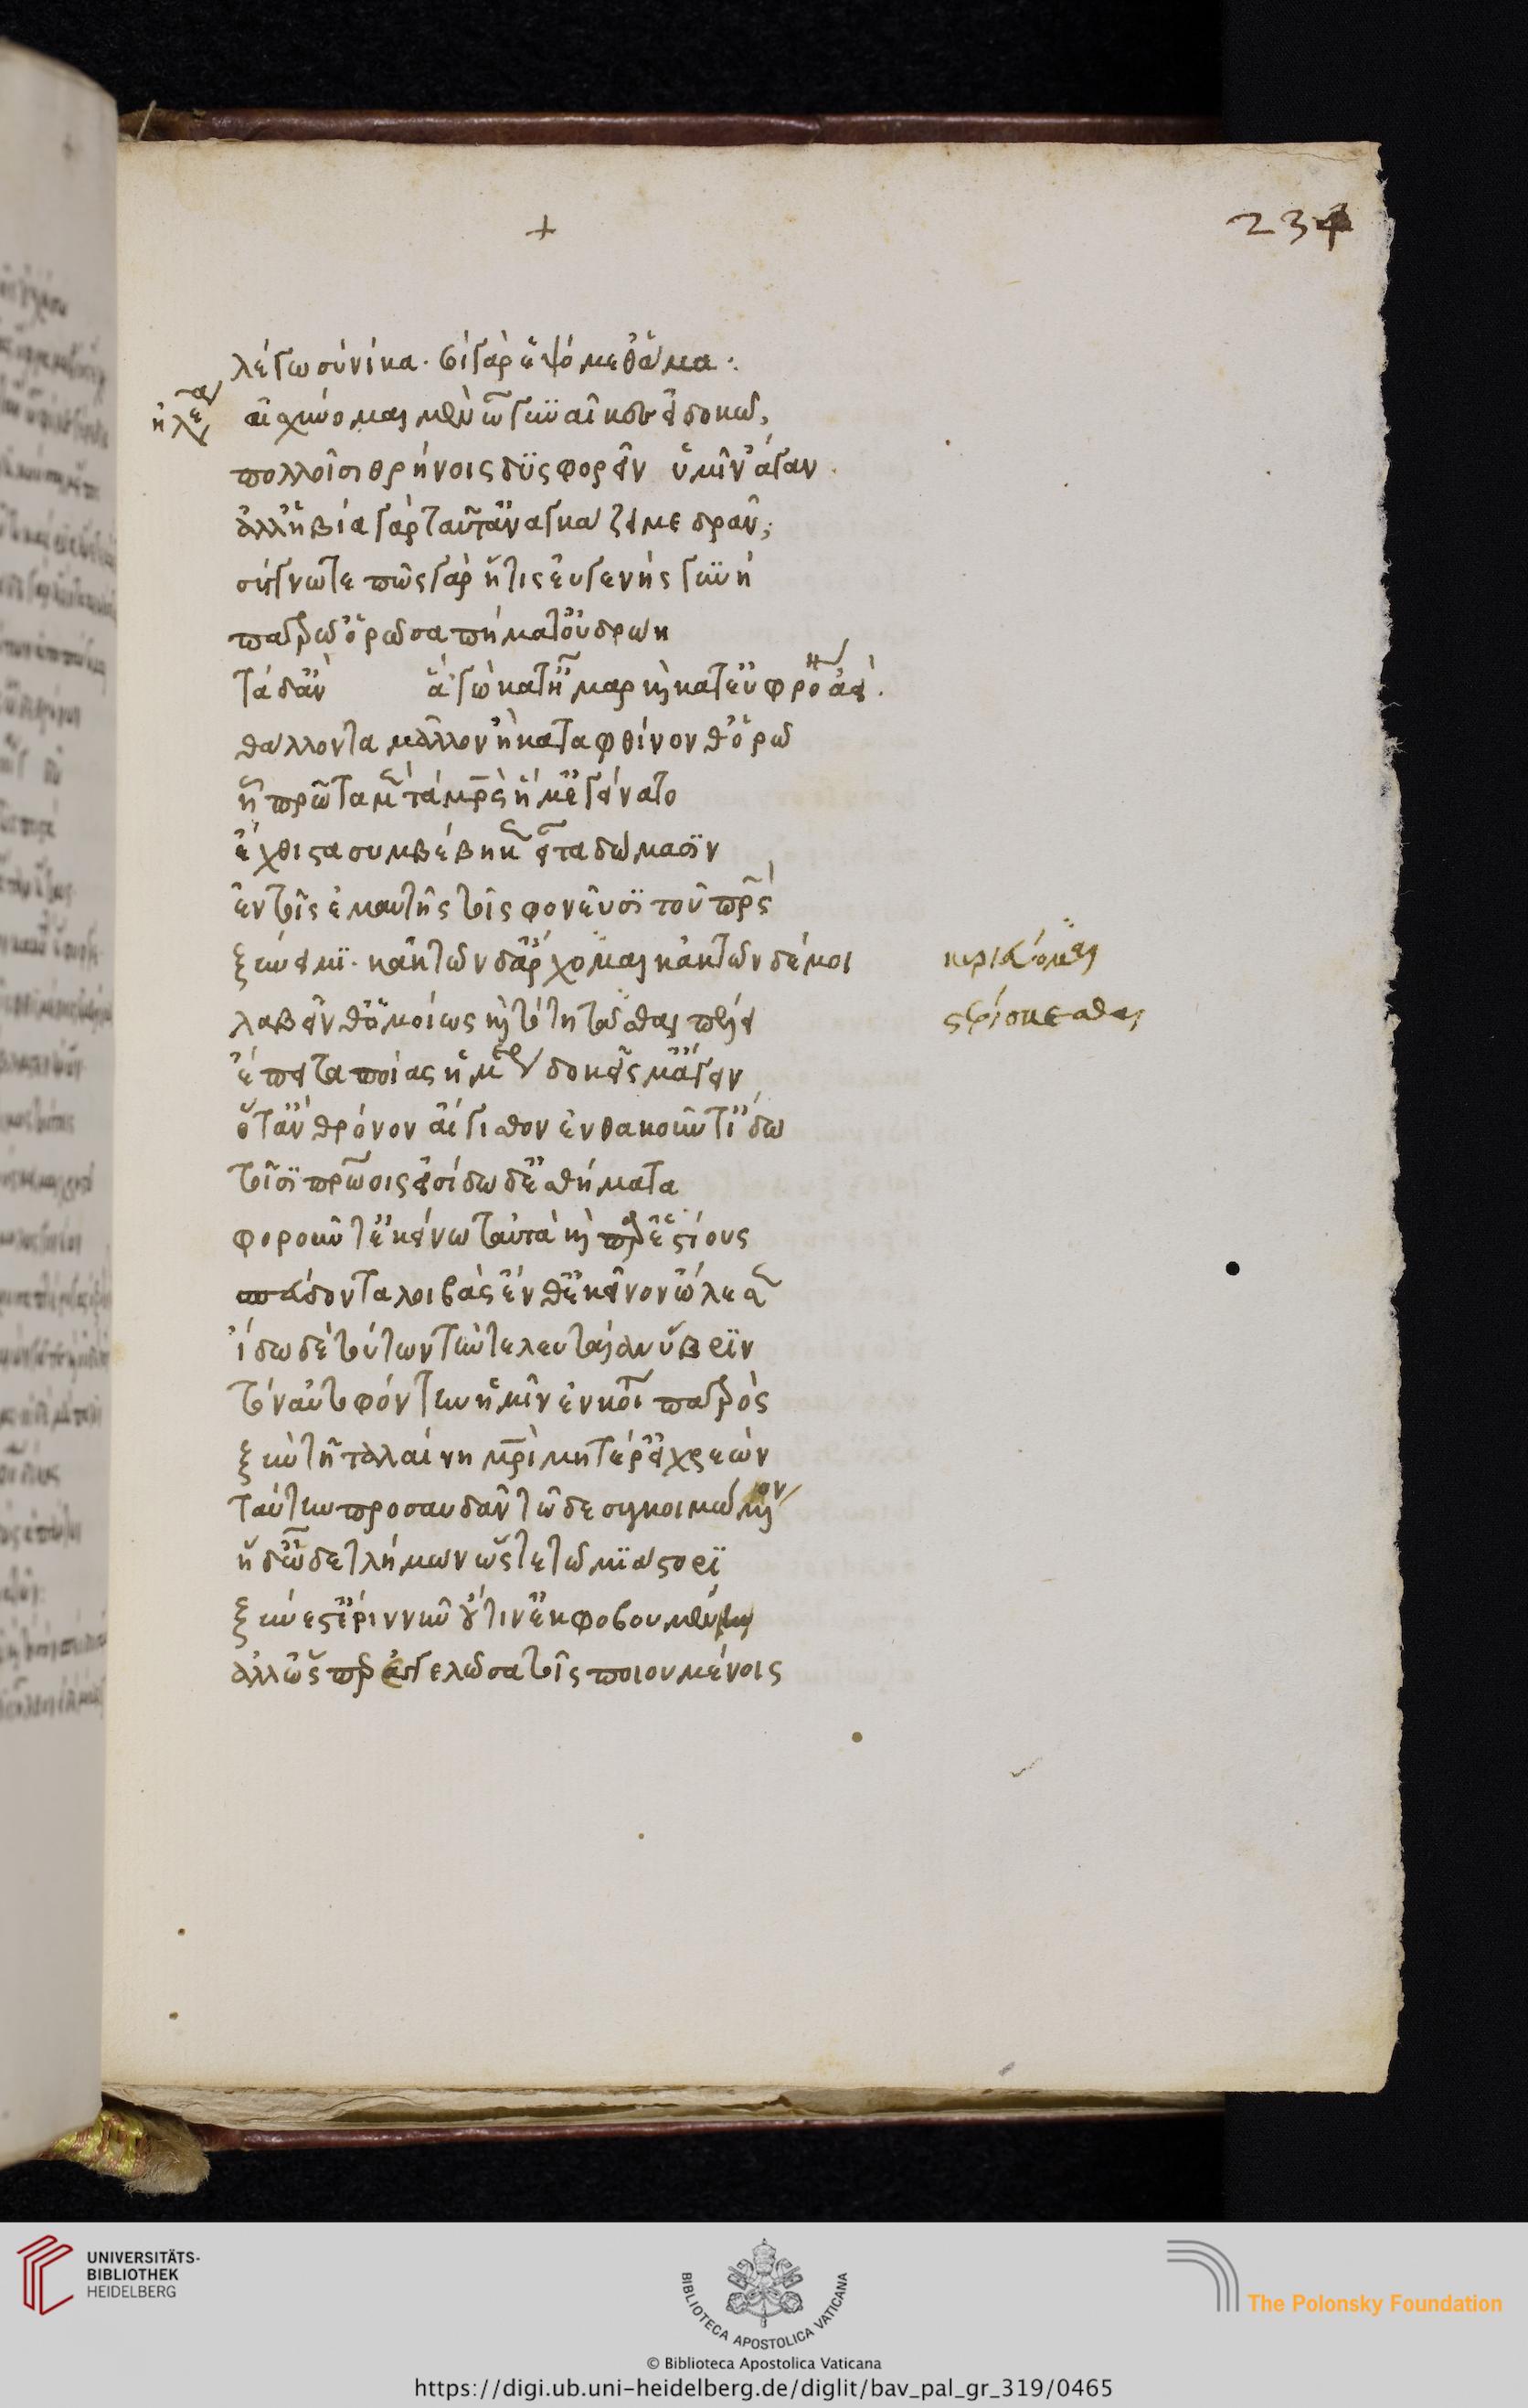 +
234
λέγω σὺ νίκα. σοὶ γὰρ ἑψόμεθ' ἅμα :
ἠλε αἰσχύνομαι μὲν ὦ γυναῖκες εἰ δοκῶ,
πολλοῖσι θρήνοις δυσφορεῖν ὑμῖν ἄγαν.
ἀλλ' ἡ βία γὰρ ταῦτ' ἀναγκάζει με δρᾶν;
σύγγνωτε πῶς γὰρ ἥτις εὐγενὴς γυνὴ
πατρῷ' ὁρῶσα πήματ' οὐ δρώη
τάδ' ἂν ἁγὼ κατ' ἦμαρ καὶ κατ' εὐφρόνην ἀεὶ.
θάλλοντα μᾶλλον ἢ καταφθίνονθ' ὁρῶ
ᾗ πρῶτα μὲν τὰ μητρὸς ἥ μ' ἐγείνατο
ἔχθιστα συμβέβηκεν εἶτα δώμασιν
ἐν τοῖς ἐμαυτῆς τοῖς φονεῦσι τοῦ πατρός
ξύνειμι. κἀκ τῶνδ' ἄρχομαι κἀκ τῶνδέ μοι
λαβεῖν θ' ὁμοίως καὶ τὸ τητᾶσθαι πέλει
στερίσκεσθαι
ἔπειτα ποίας ἡμέρας δοκεῖς μ' ἄγειν
ὅταν θρόνοις αἴγισθον ἐνθακοῦντ' ἴδω
τοῖσι πατρώοις εἰσίδω δ' ἐσθήματα
φοροῦντ' ἐκείνῳ ταὐτὰ καὶ παρεστίους
σπένδοντα λοιβὰς ἔνθ' ἐκεῖνον ὤλεσεν
ἴδω δὲ τούτων τὴν τελευταίαν ὕβριν
τὸν αὐτοφόντην ἡμῖν ἐν κοίτῃ πατρὸς
ξὺν τῇ ταλαίνῃ μητρὶ μητέρ' εἰ χρεὼν
ταύτην προσαυδᾶν τῷδε συγκοιμωμένην
ἡ δ' ὧδε τλήμων ὥστε τῷ μιάστορι
ξύνεστ' ἐριννῦν οὔτιν' ἐκφοβουμένη
ἀλλ' ὥσπερ ἐγγελῶσα τοῖς ποιουμένοις
UNIVERSITÄTS-
BIBLIOTHEK
HEIDELBERG
BIBLIOTECA APOSTOLICA VATICANA
The Polonsky Foundation
© Biblioteca Apostolica Vaticana
https://digi.ub.uni-heidelberg.de/diglit/bav_pal_gr_319/0465